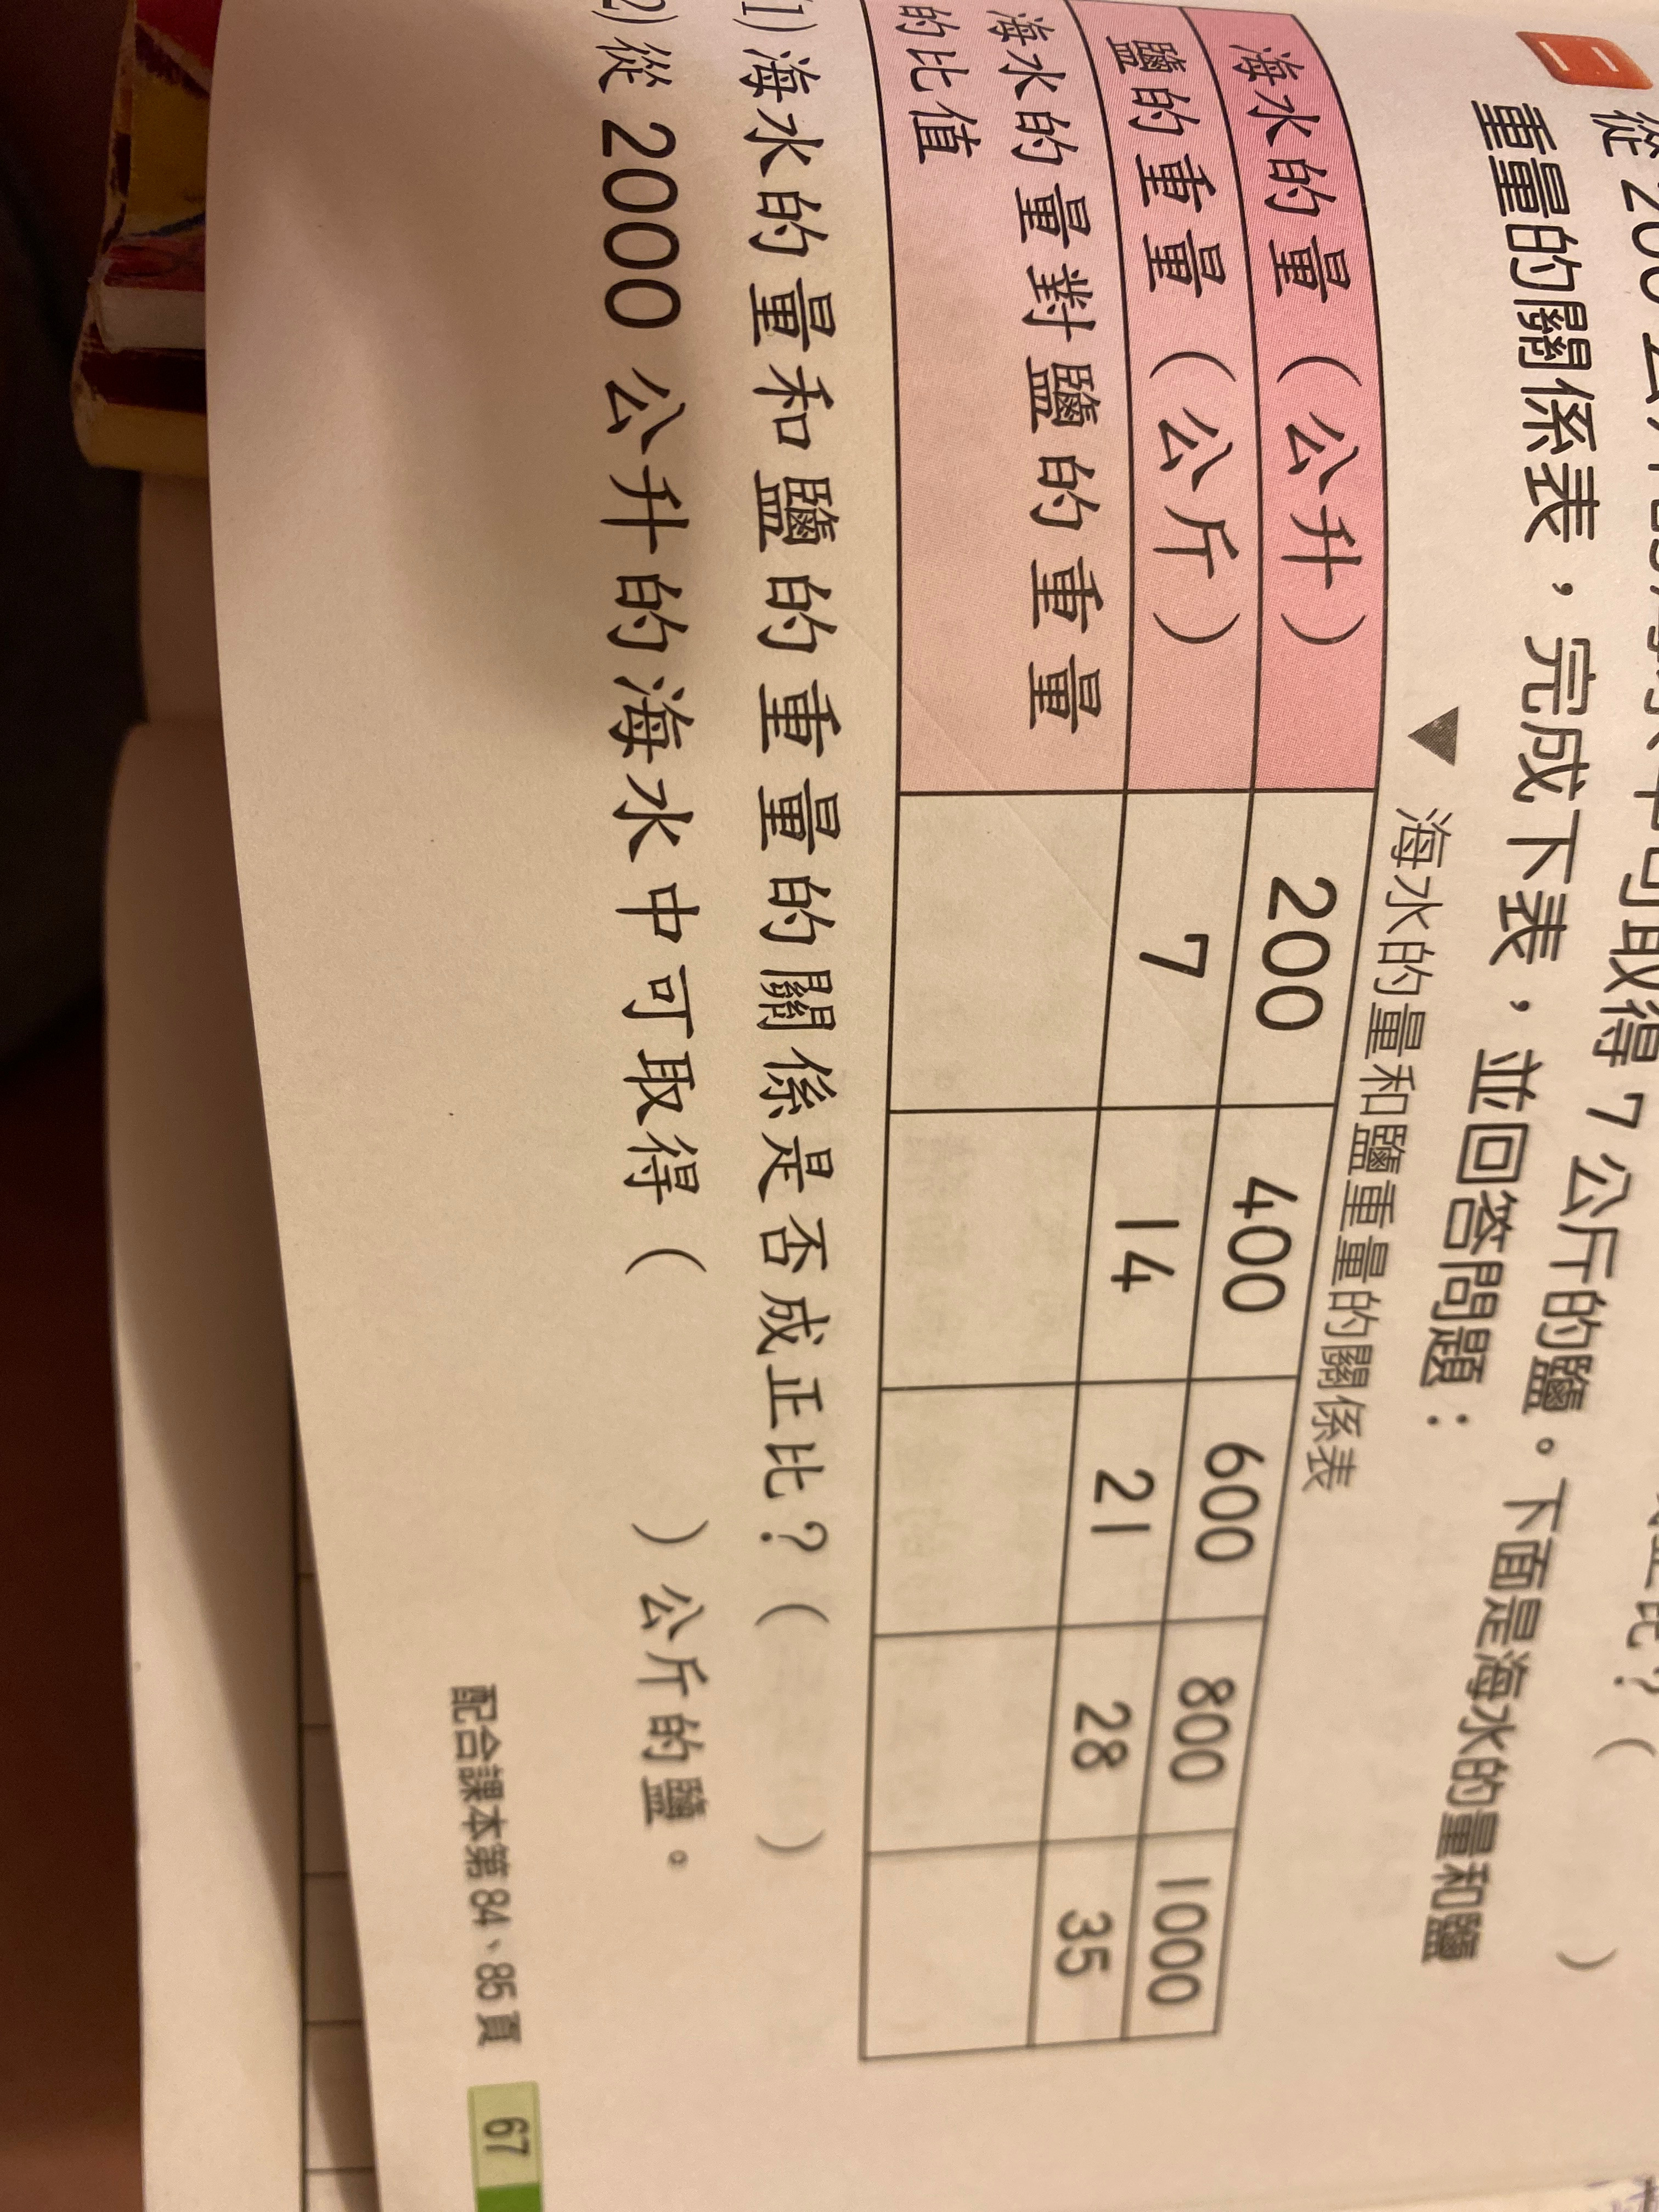 二 從 200 公升的海水中可取得 7 公斤的鹽。下面是海水的量和鹽
重量的關係表，完成下表，並回答問題：
▼ 海水的量和鹽重量的關係表
海水的量（公升） 200 400 600 800 1000
鹽的重量（公斤） 7 14 21 28 35
海水的量對鹽的重量
的比值
1) 海水的量和鹽的重量的關係是否成正比？（ ）
2) 從 2000 公升的海水中可取得（ ）公斤的鹽。
配合課本第 84、85 頁 67